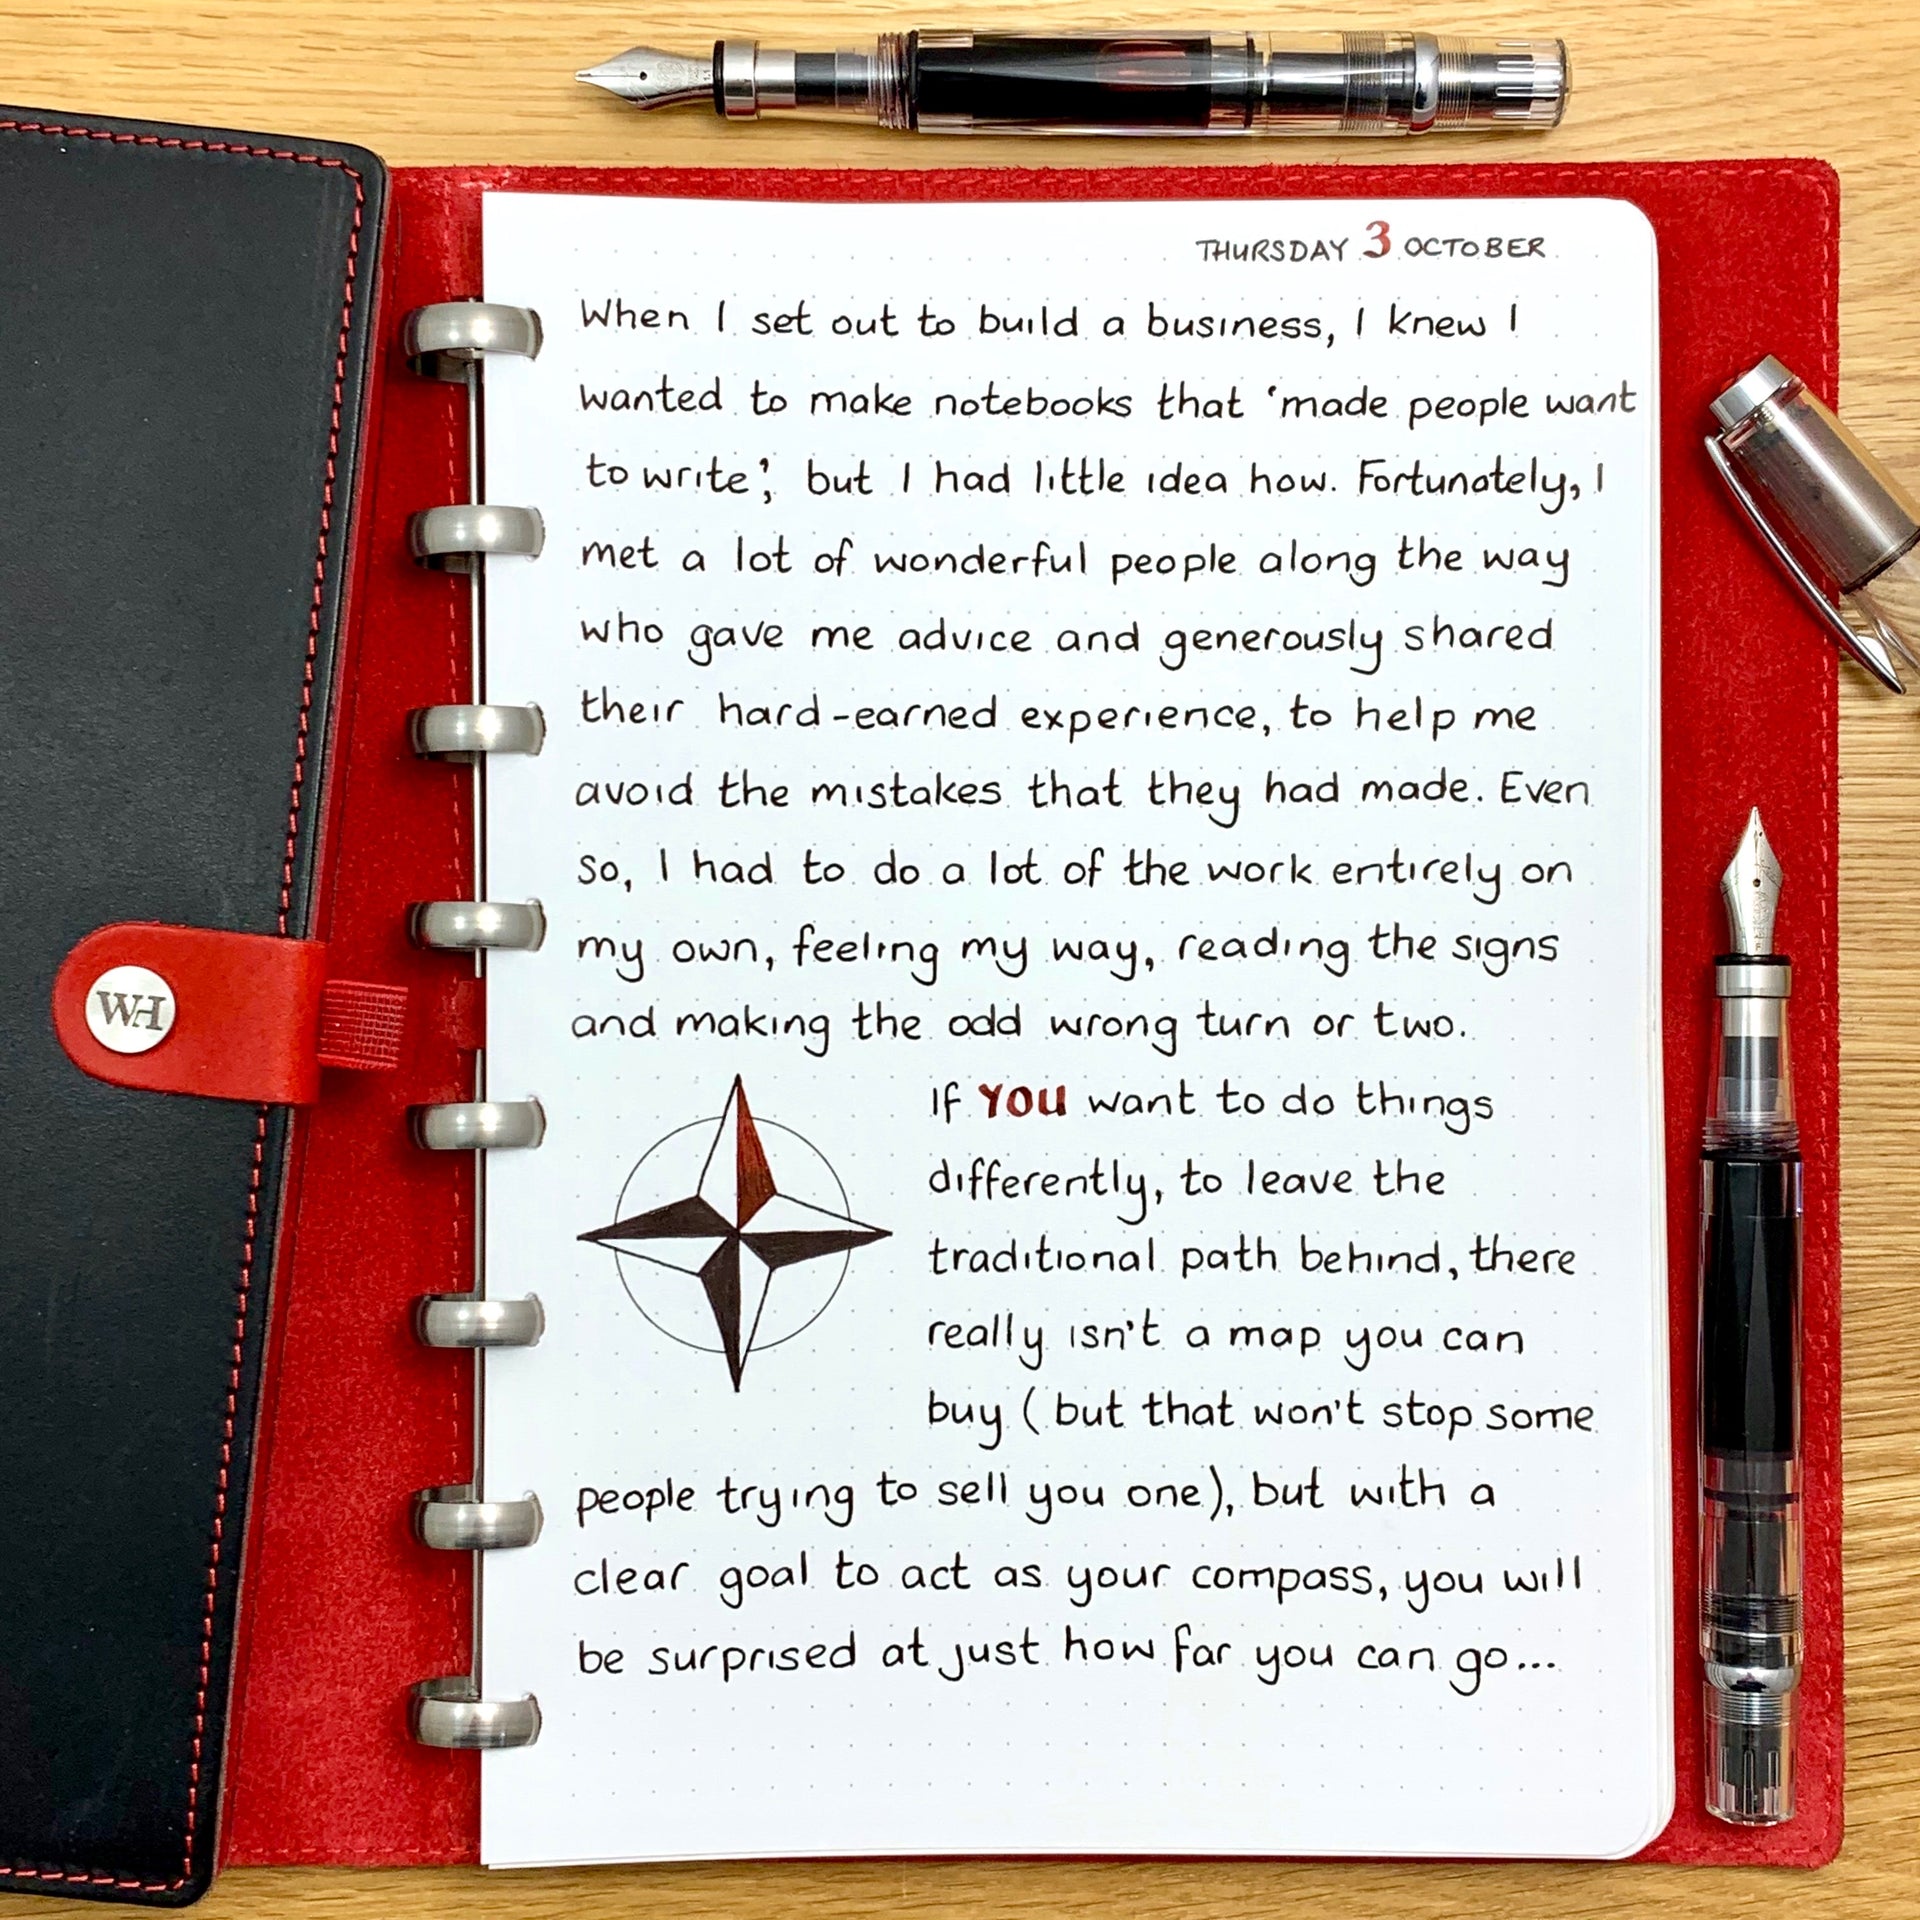 THURSDAY 3 OCTOBER
When I set out to build a business, I knew I
wanted to make notebooks that 'made people want
to write', but I had little idea how. Fortunately, I
met a lot of wonderful people along the way
who gave me advice and generously shared
their hard-earned experience, to help me
avoid the mistakes that they had made. Even
so, I had to do a lot of the work entirely on
my own, feeling my way, reading the signs
and making the odd wrong turn or two.
If YOU want to do things
differently, to leave the
traditional path behind, there
really isn't a map you can
buy (but that won't stop some
people trying to sell you one), but with a
clear goal to act as your compass, you will
be surprised at just how far you can go...
WH